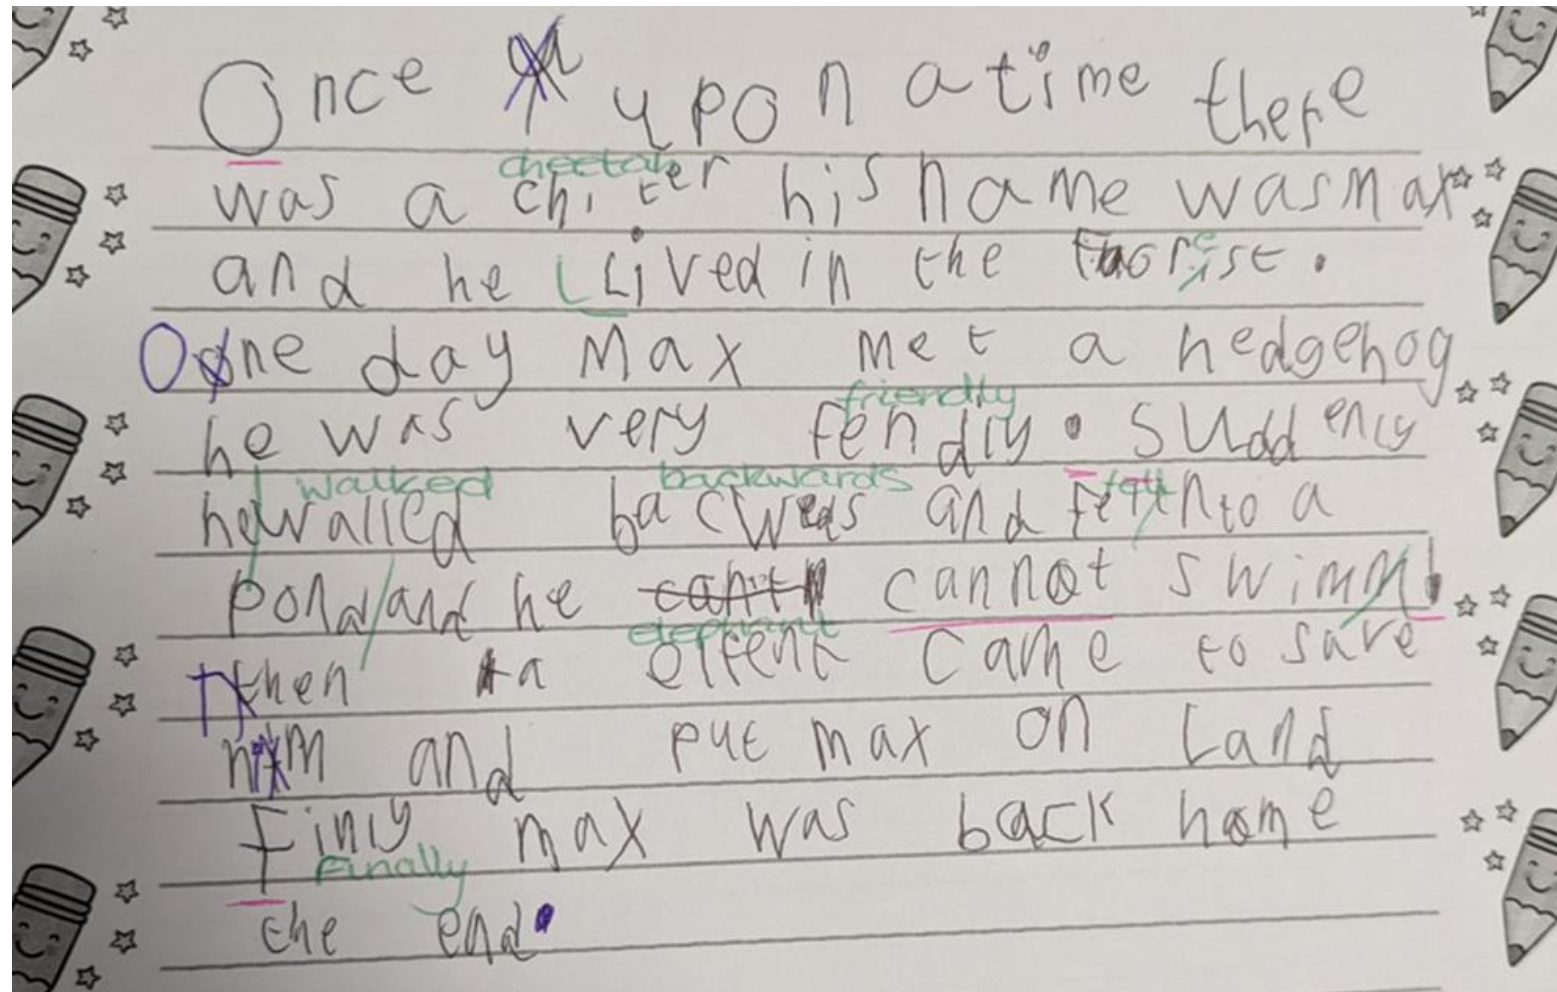 Once upon a time there
cheetah
was a chiter his name was Max
and he l Lived in the forist.
e
Oone day Max met a hedgehog
friendly
he was very fendly. Suddenly
walked backwards fell
he walled bacweds and fell into a
pond/and he can't cannot swimm!
elephant
Tthen a elfent came to save
him and put max on Land
Finly max was back home
Finally
the end.